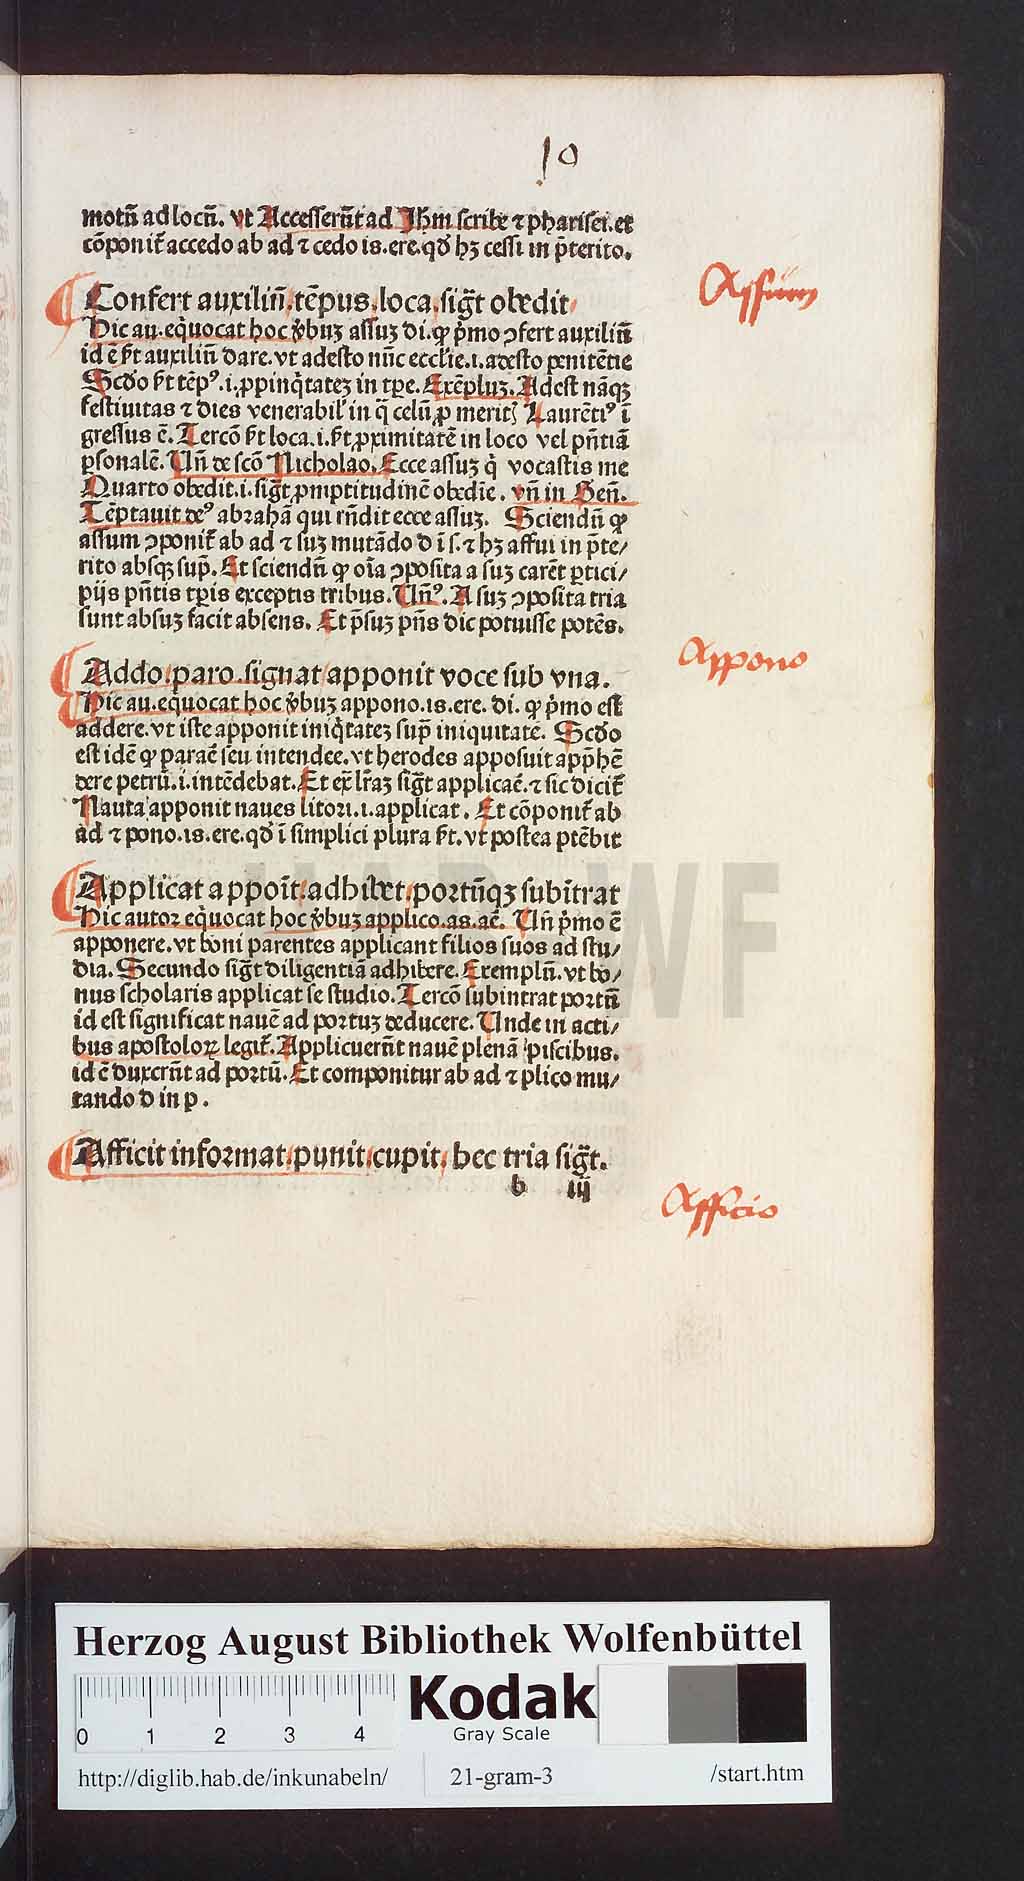 10
motū ad locū. vt Accesserūt ad Jhm scribe ⁊ pharisei. et
cōponit̄ accedo ab ad ⁊ cedo is. ere. qď hꝫ cessi in p̄terito.
Assum
Confert auxiliū. tēpus. loca. sigt̄ obedit
Hic au. eq̄uocat hoc v̄buꝫ assuꝫ di. ꝙ p̄mo ꝯfert auxiliū
id ē st̄ auxiliū dare. vt adesto nūc ecclie. i. adesto penitētie
Scďo st̄ tēpꝰ. i. ꝓpinq̄tateꝫ in tꝑe. Exēpluꝫ. Adest nāqꝫ
festiuitas ⁊ dies venerabil' in q̄ celū ꝓ merit' Laurētiꝰ ī
gressus ē. Tercō st̄ loca. i. st̄ ꝓximitatē in loco vel pn̄tiā
ꝑsonalē. Un̄ de scō Nicholao. Ecce assuꝫ q̄ vocastis me
Quarto obedit. i. sigt̄ ꝓmptitudinē obedīe. vn̄ in Gen̄.
Tēptauit deꝰ abrahā qui rn̄dit ecce assuꝫ. Sciendū ꝙ
assum ꝯponit̄ ab ad ⁊ suꝫ mutādo d ī s. ⁊ hꝫ affui in p̄te/
rito absqꝫ sup̄. Et sciendū ꝙ oīa ꝯposita a suꝫ carēt ꝑtici/
pijs pn̄tis tꝑis exceptis tribus. Un̄ꝰ. A suꝫ ꝯposita tria
sunt absuꝫ facit absens. Et p̄suꝫ pn̄s dic potuisse potēs.
Appono
Addo. paro. signat apponit voce sub vna.
Hic au. equocat hoc v̄buꝫ appono. is. ere. di. ꝙ p̄mo est
addere. vt iste apponit iniq̄tateꝫ sup̄ iniquitate. Scďo
est idē ꝙ paraē seu intendee. vt herodes apposuit app̄hē
dere petrū. i. intēdebat. Et ex̄ lr̄aꝫ sigt̄ applicaē. ⁊ sic dicit̄
Nauta apponit naues litori. i. applicat. Et cōponit̄ ab
ad ⁊ pono. is. ere. qď ī simplici plura st̄. vt postea ptēbit
Applicat appoīt. adhibet. portūqꝫ subītrat
Hic autor eq̄uocat hoc v̄buꝫ applico. as. aē. Un̄ p̄mo ē
apponere. vt boni parentes applicant filios suos ad stu/
dia. Secundo sigt̄ diligentiā adhibere. Exemplū. vt bo/
nus scholaris applicat se studio. Tercō subintrat portū
id est significat nauē ad portuꝫ deducere. Unde in acti/
bus apostoloꝝ legit̄. Applicuerūt nauē plenā piscibus.
id ē duxerūt ad portū. Et componitur ab ad ⁊ plico mu/
tando d in p.
Afficit informat. punit. cupit. hec tria sigt̄.
b iij
Afficio
HAB WF
Herzog August Bibliothek Wolfenbüttel
0 1 2 3 4
Kodak
Gray Scale
http://diglib.hab.de/inkunabeln/ 21-gram-3 /start.htm